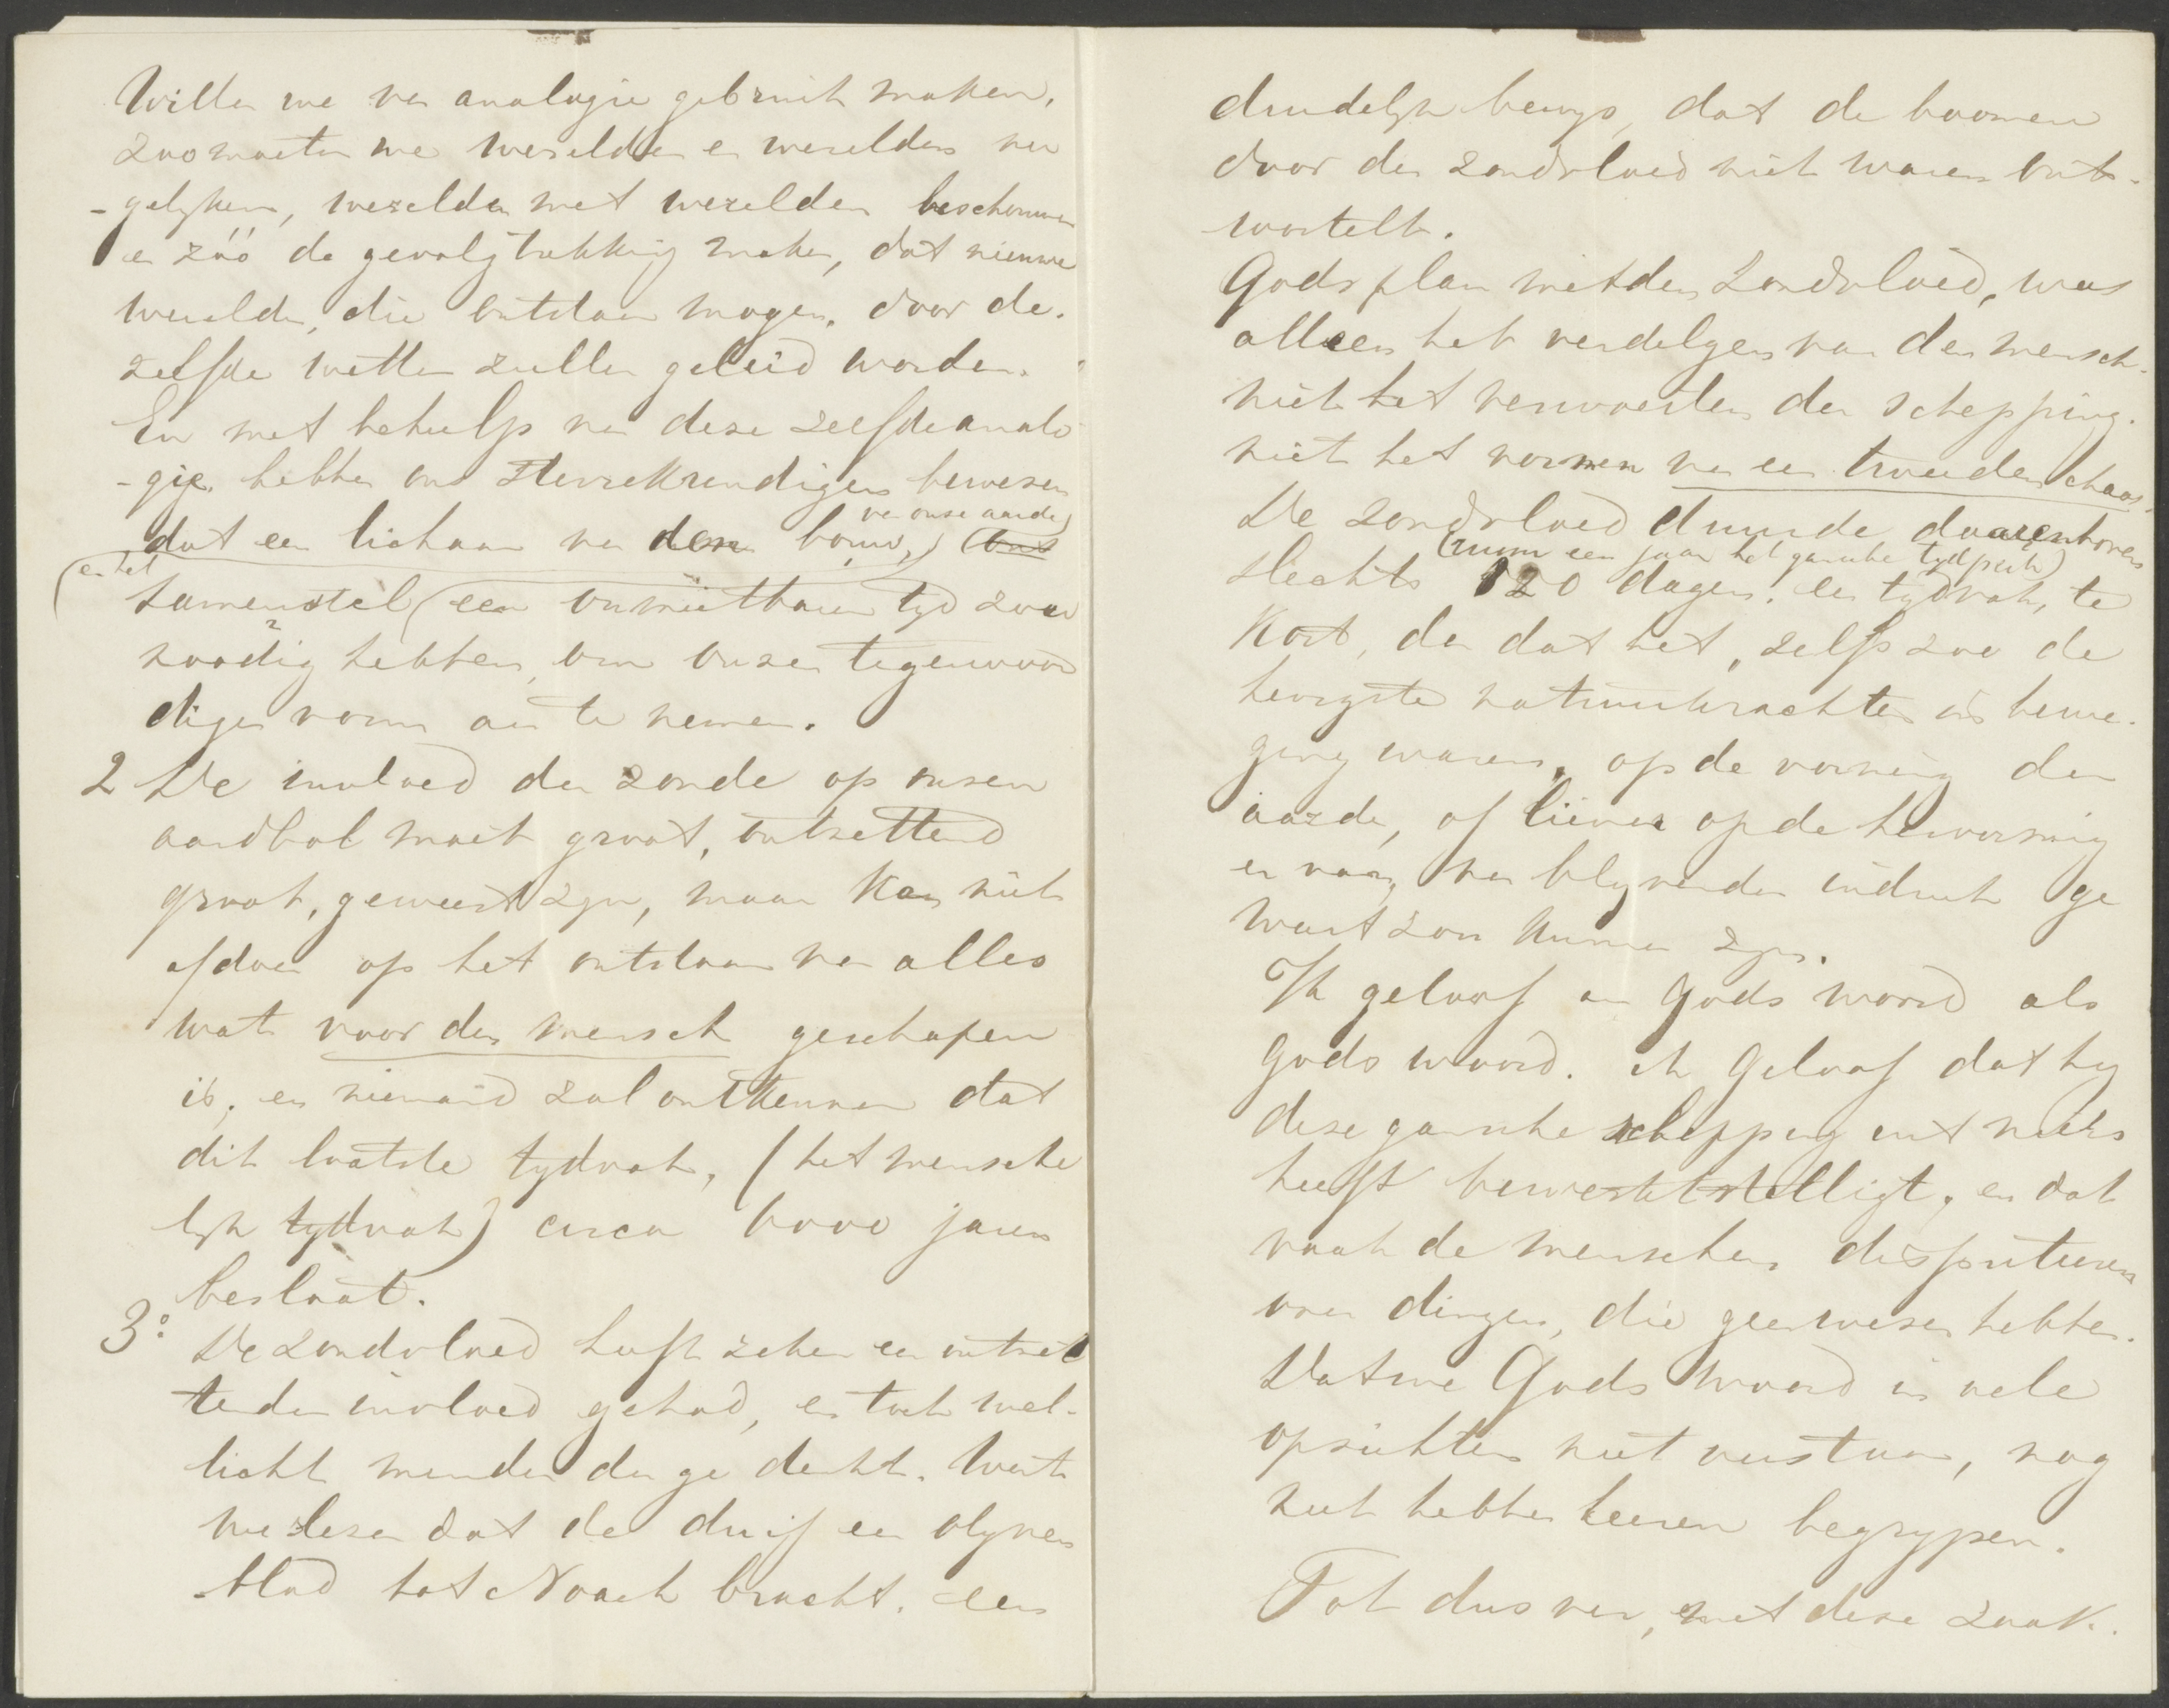 Willen we van analogie gebruik maken,
zoo moeten we werelden en werelden ver
-gelyken, werelden met werelden beschouwen
en zóó de gevolgtrekking maken, dat nieuwe
werelden, die ontstaan mogen, door de-
zelfde wetten zullen geleid worden.
En met behulp van deze zelfde analo
-gie, hebben ons sterrekundigen bewezen
dat een lichaam van den bouw, (van onze aarde)
(en het
samenstel een onmeetbaren tyd zou
noodig hebben, om onzen tegenwoor
digen vorm aan te nemen.
2 De invloed der zonde op onzen
aardbol moet groot, ontzettend
groot, geweest zyn, maar kan niets
afdoen op het ontstaan van alles
wat voor den mensch geschapen
is, en niemand zal ontkennen dat
dit laatste tydvak, (het mensche
lyk tydvak) circa 6000 jaren
beslaat.
3° De zondvloed heeft zeker een ontzet
tenden invloed gehad, en toch wel-
licht minder dan ge denkt. Want
we lezen dat de duif een olyven
blad tot Noach bracht. een
duidelyk bewys, dat de boomen
door den zondvloed niet waren ont-
wortelt.
Gods plan met den Zondvloed, was
alleen het verdelgen van den mensch.
niet het verwoesten der schepping.
niet het vormen van een tweeden chaos.
De zondvloed duurde daarenboven
(ruim een jaar het gansche tydperk)
slechts 120 dagen. een tydvak, te
kort, dan dat het, zelfs zoo de
hevigste natuurkrachten in bewe-
ging waren, op de vorming der
aarde, of liever op de hervorming
er van, van blyvenden indruk ge
weest zou kunnen zyn.
Ik geloof aan Gods woord als
Gods woord. ik geloof dat hy
deze gansche schepping uit niets
heeft bewerkstelligt, en dat
vaak de menschen disputeeren
over dingen, die geen wezen hebben.
Dat we Gods Woord in vele
opzichten niet verstaan, nog
niet hebben leeren begrypen.
Tot dus ver, met deze zaak.